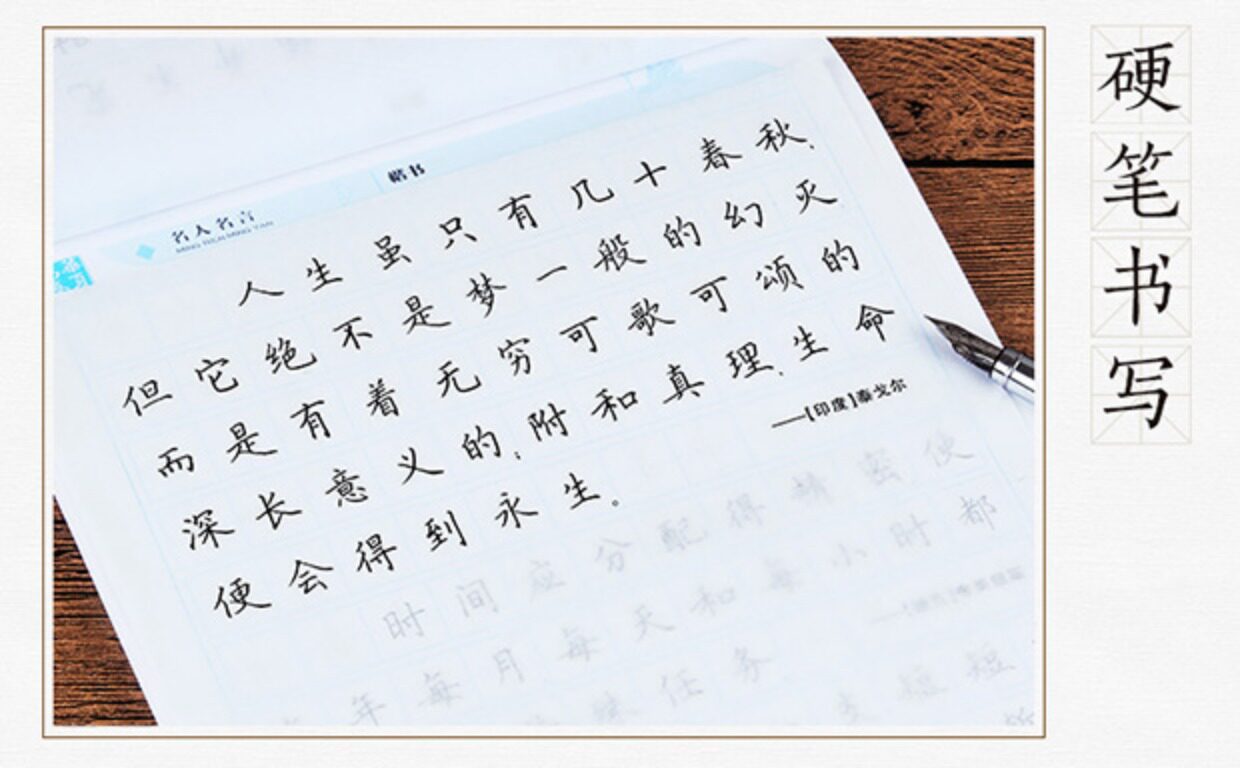 名人名言
MING REN MING YAN
楷书
人生虽只有几十春秋,
但它绝不是梦一般的幻灭,
而是有着无穷可歌可颂的
深长意义的;附和真理,生命
便会得到永生。
——[印度]泰戈尔
时间应分配得精密使
年每月每天和每小时都
任务
硬笔书写